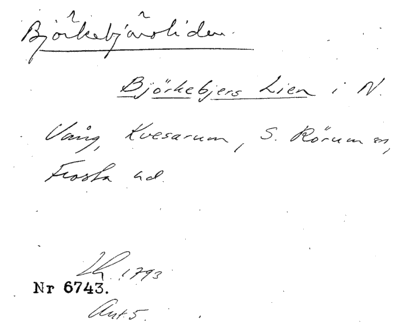 Björkebjärsliden.
Björkebjers Lien i N.
Vång, Kvesarum, S. Rörum sn,
Frosta hd.
Lh 1793
Nr 6743.
Akt 5